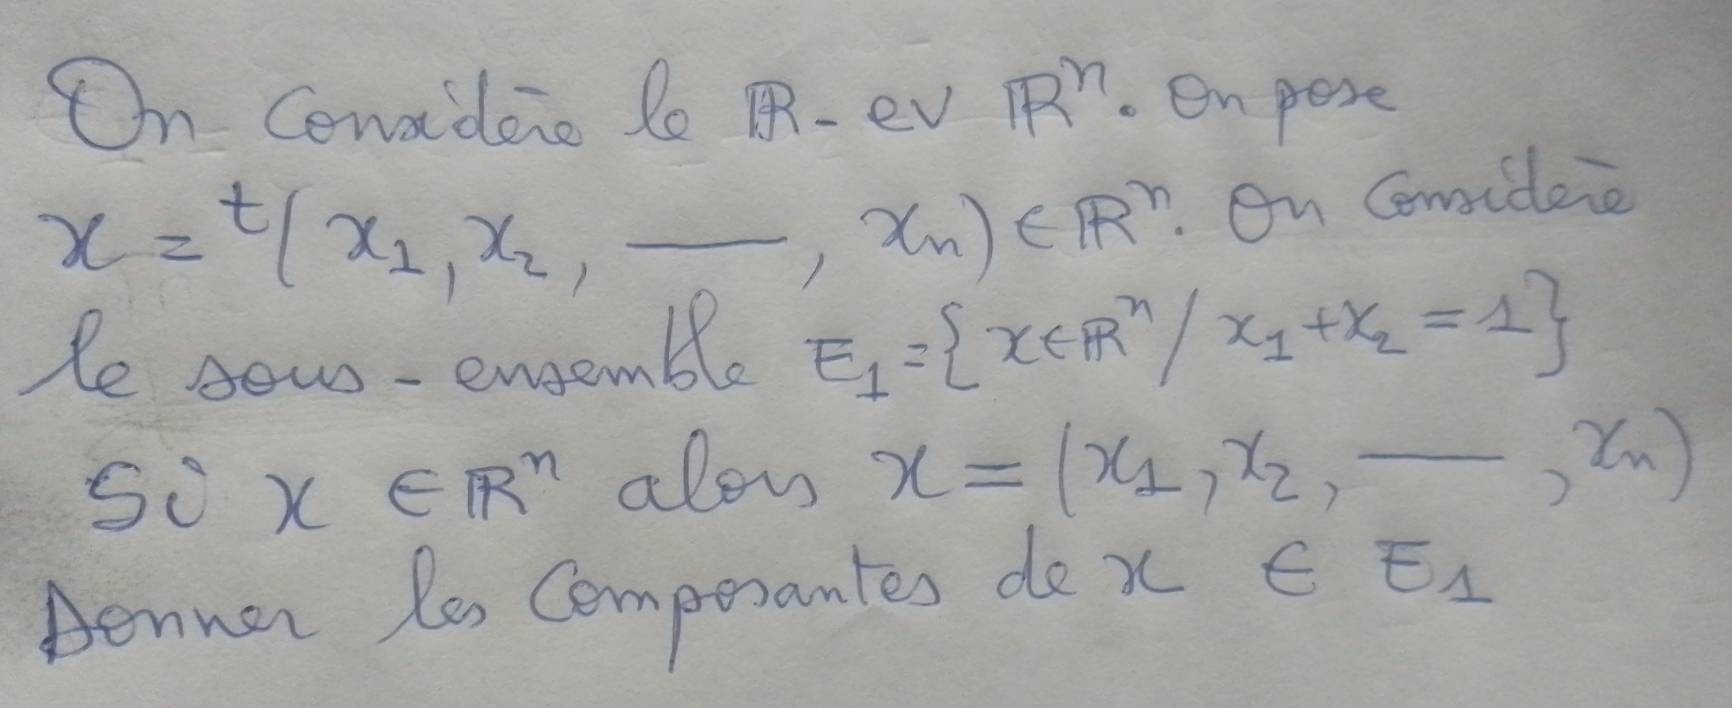 On considère le ℝ-ev ℝⁿ. On pose
x = ᵗ(x₁, x₂, —, xₙ) ∈ ℝⁿ. On Considère
le sous-ensemble E₁ = {x ∈ ℝⁿ / x₁ + x₂ = 1}
Si x ∈ ℝⁿ alors x = (x₁, x₂, —, xₙ)
Donner les Composantes de x ∈ E₁